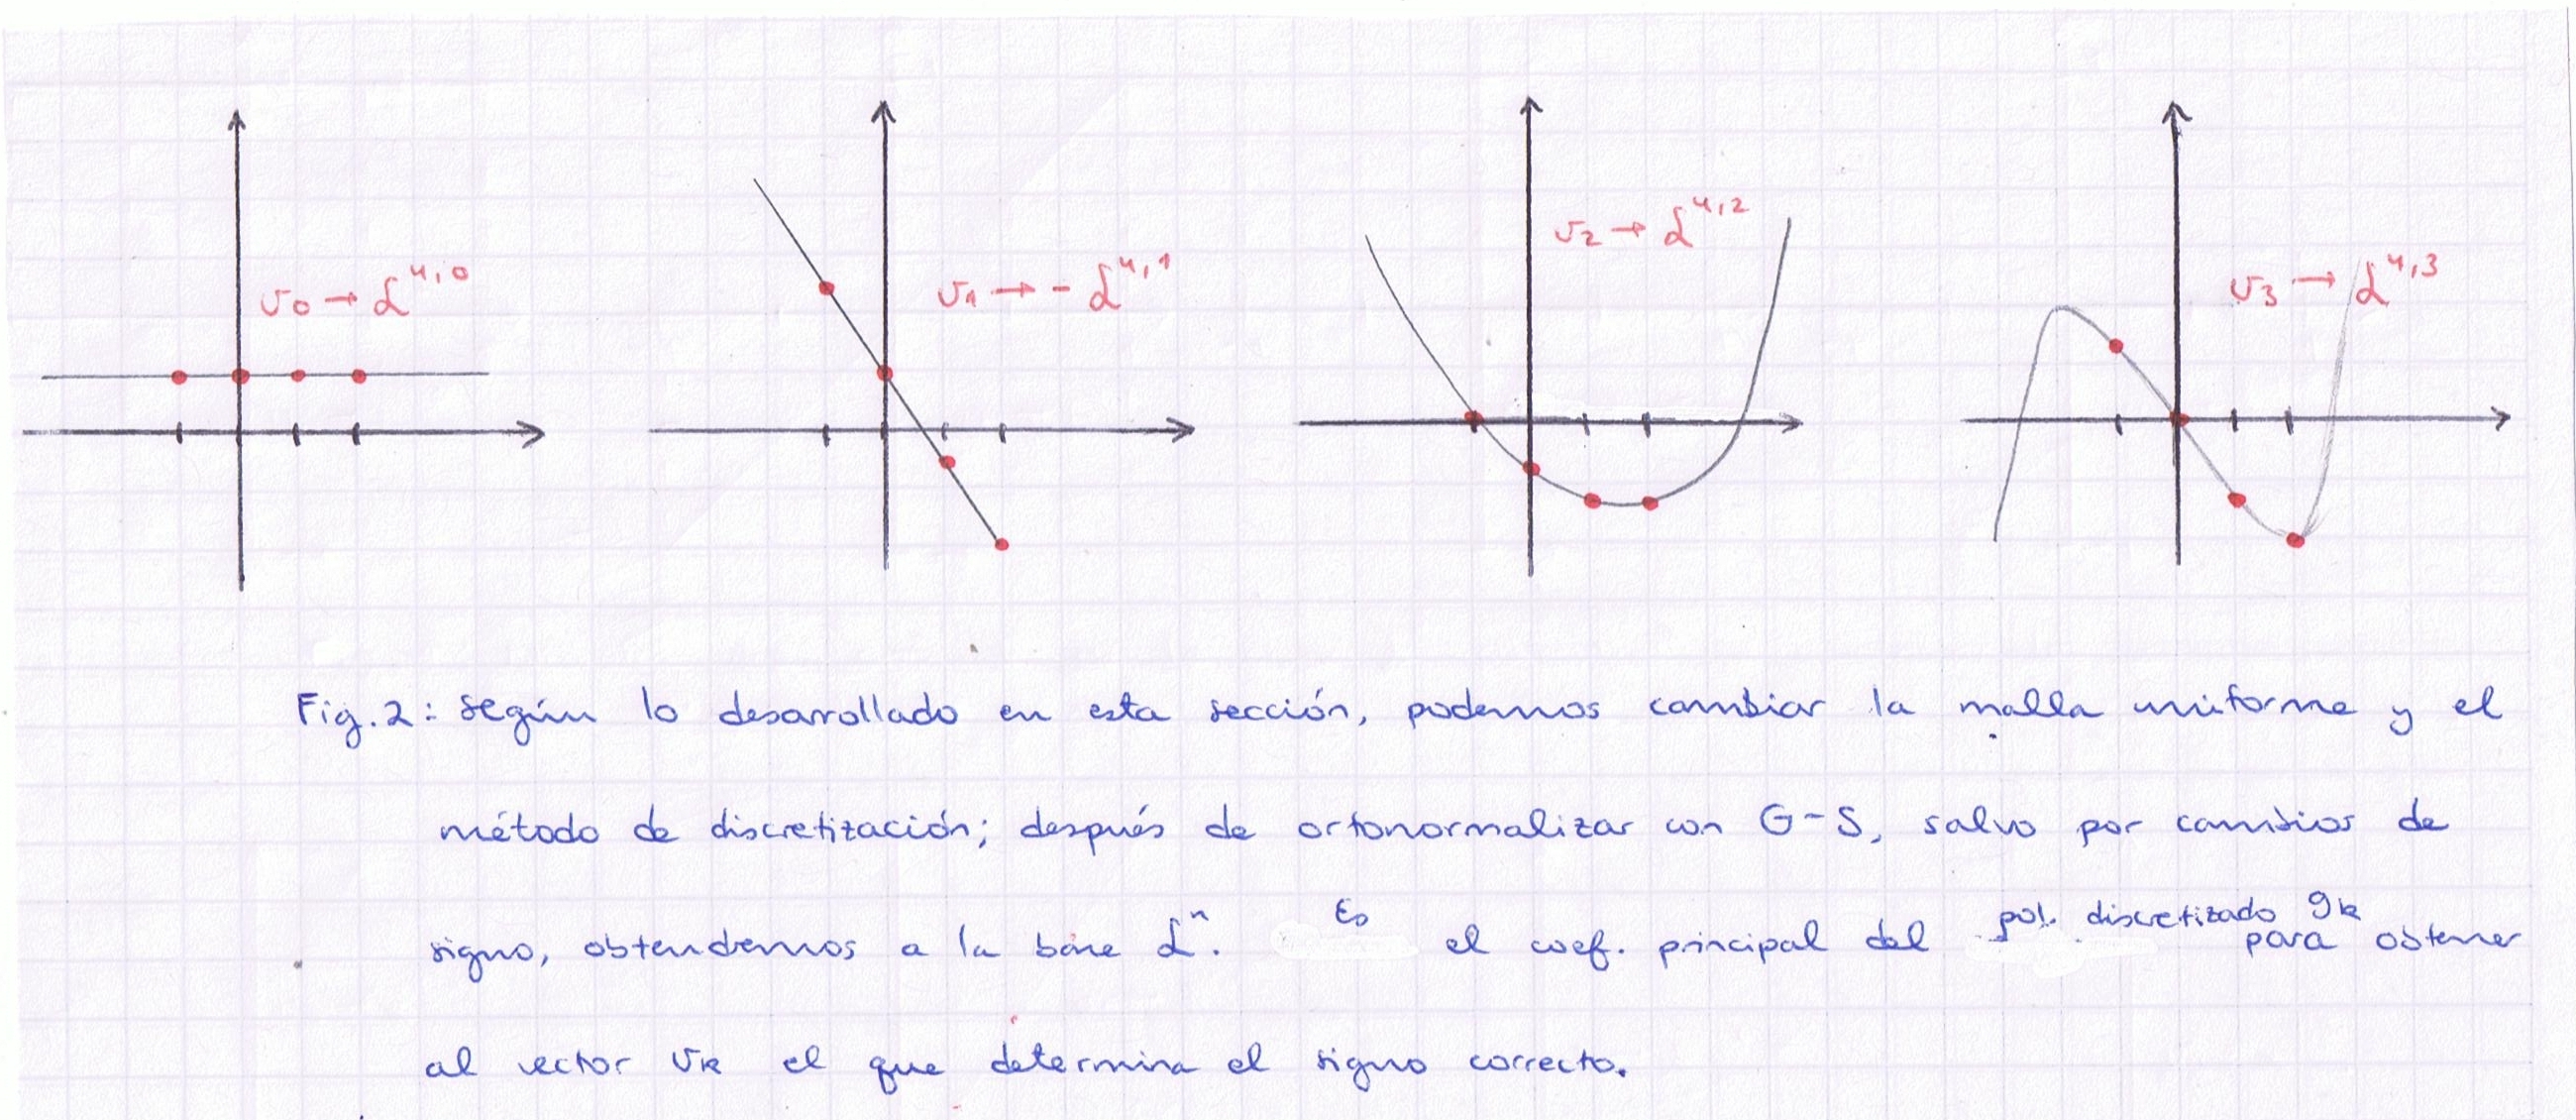 v₀ → ℒ⁴,⁰
v₁ → - ℒ⁴,¹
v₂ → ℒ⁴,²
v₃ → ℒ⁴,³
Fig. 2: según lo desarrollado en esta sección, podemos cambiar la malla uniforme y el
método de discretización; después de ortonormalizar con G-S, salvo por cambios de
signo, obtendremos a la base ℒⁿ. Es el coef. principal del pol. discretizado gₖ para obtener
al vector vₖ el que determina el signo correcto.